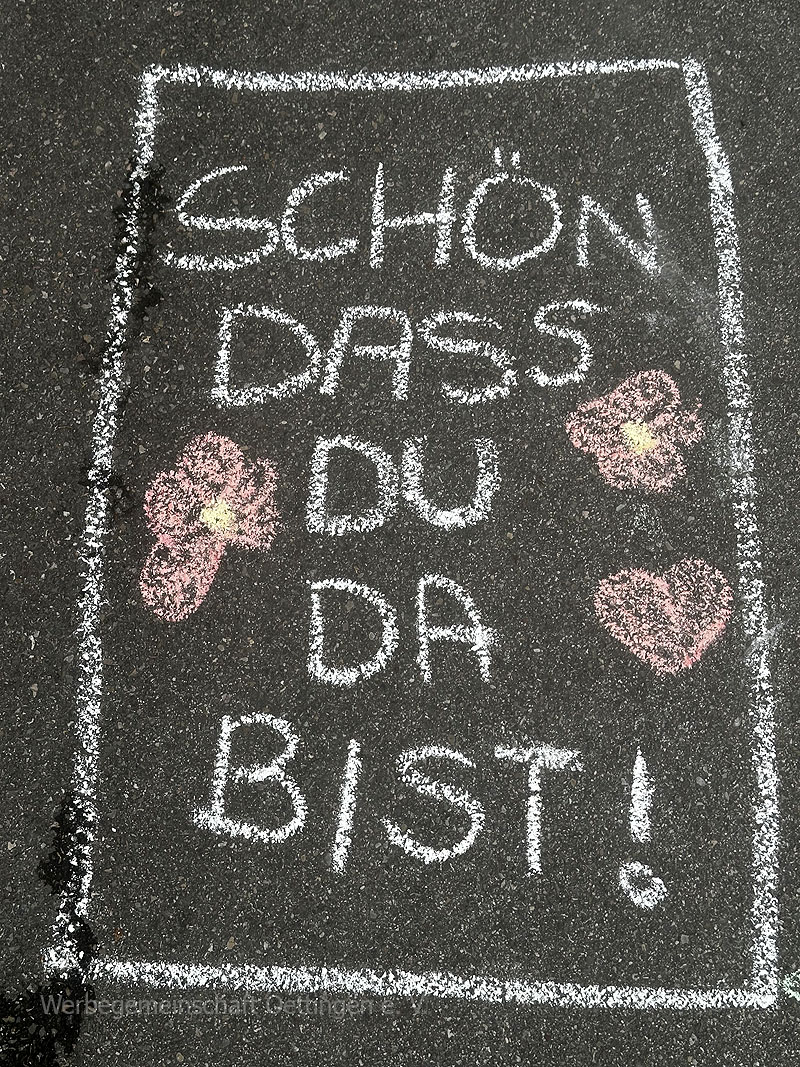 SCHÖN
DASS
DU
DA
BIST!
Werbegemeinschaft Oettingen e. V.